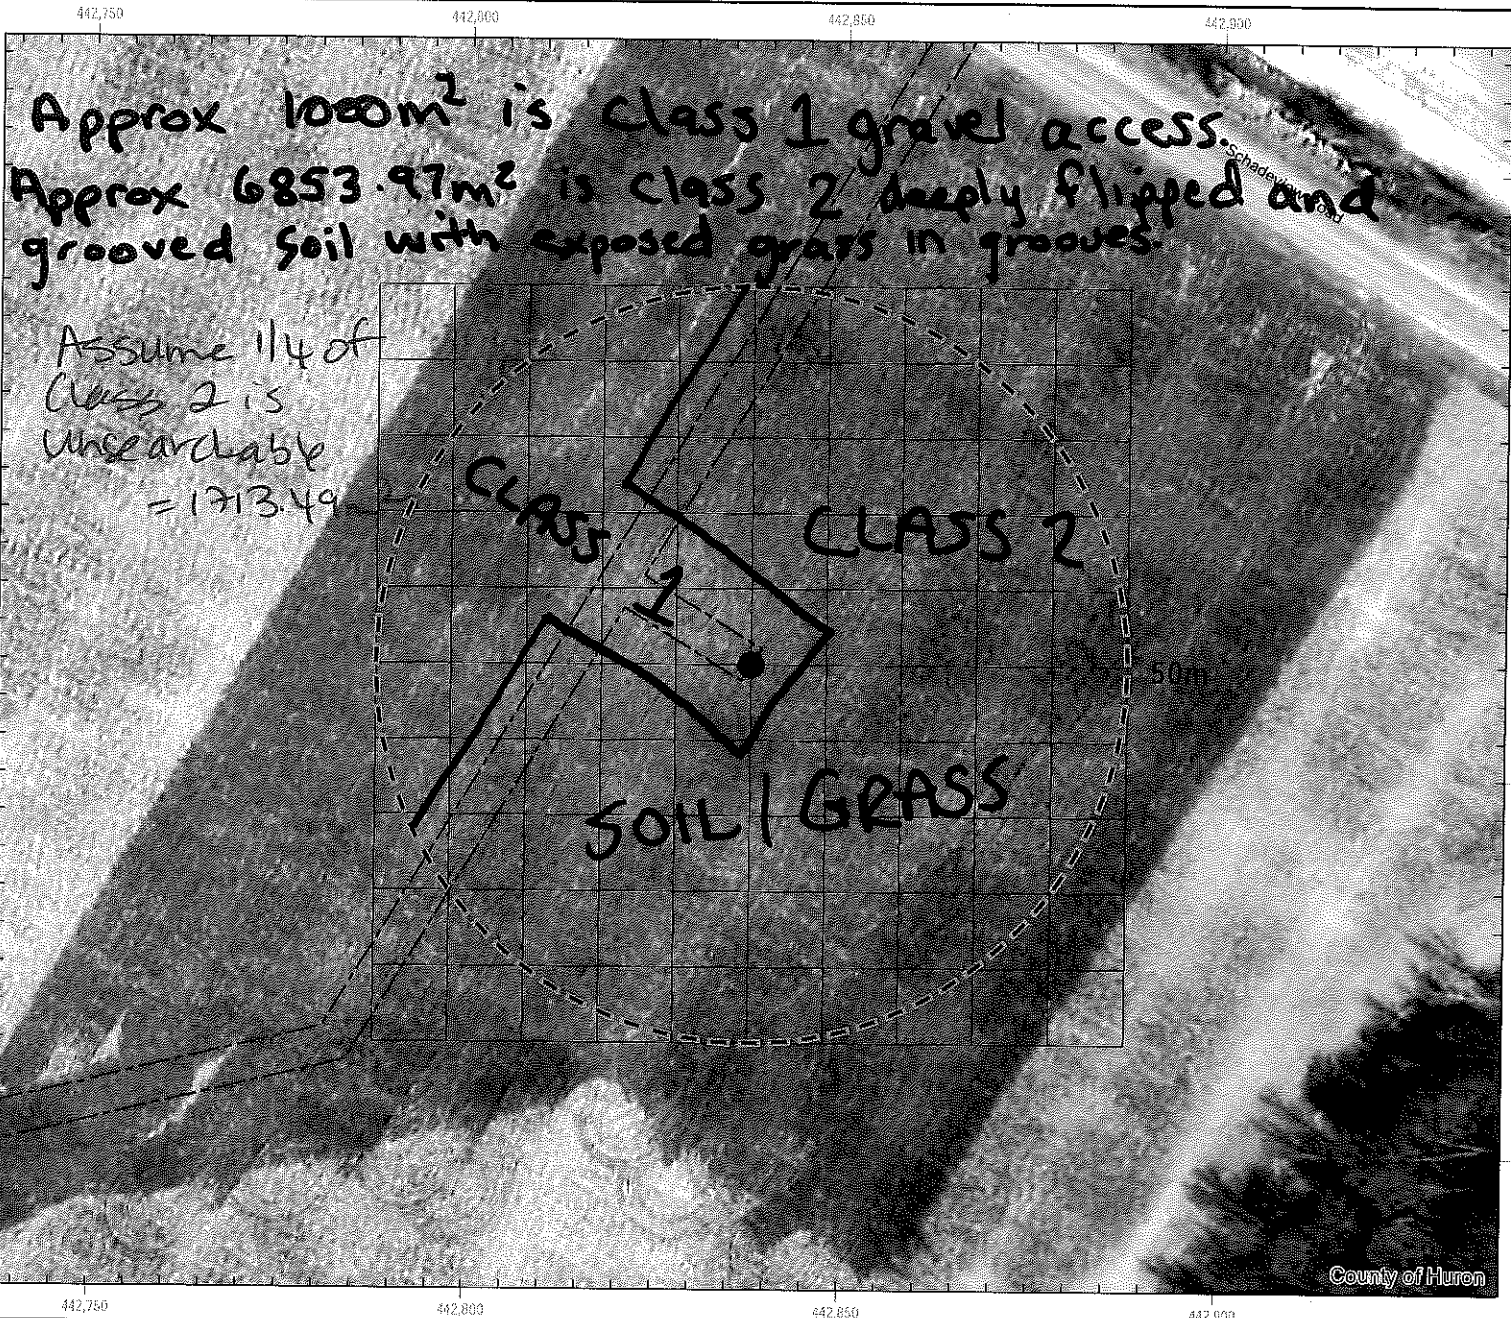 442,750 442,800 442,850 442,900
Approx 1000m² is class 1 gravel access.
Approx 6853.97m² is class 2 deeply flipped and
grooved soil with exposed grass in grooves.
Schadeview Road
Assume 1/4 of
Class 2 is
Unsearchable
= 1713.49
CLASS
1
CLASS 2
50m
SOIL / GRASS
County of Huron
442,750 442,800 442,850 442,900